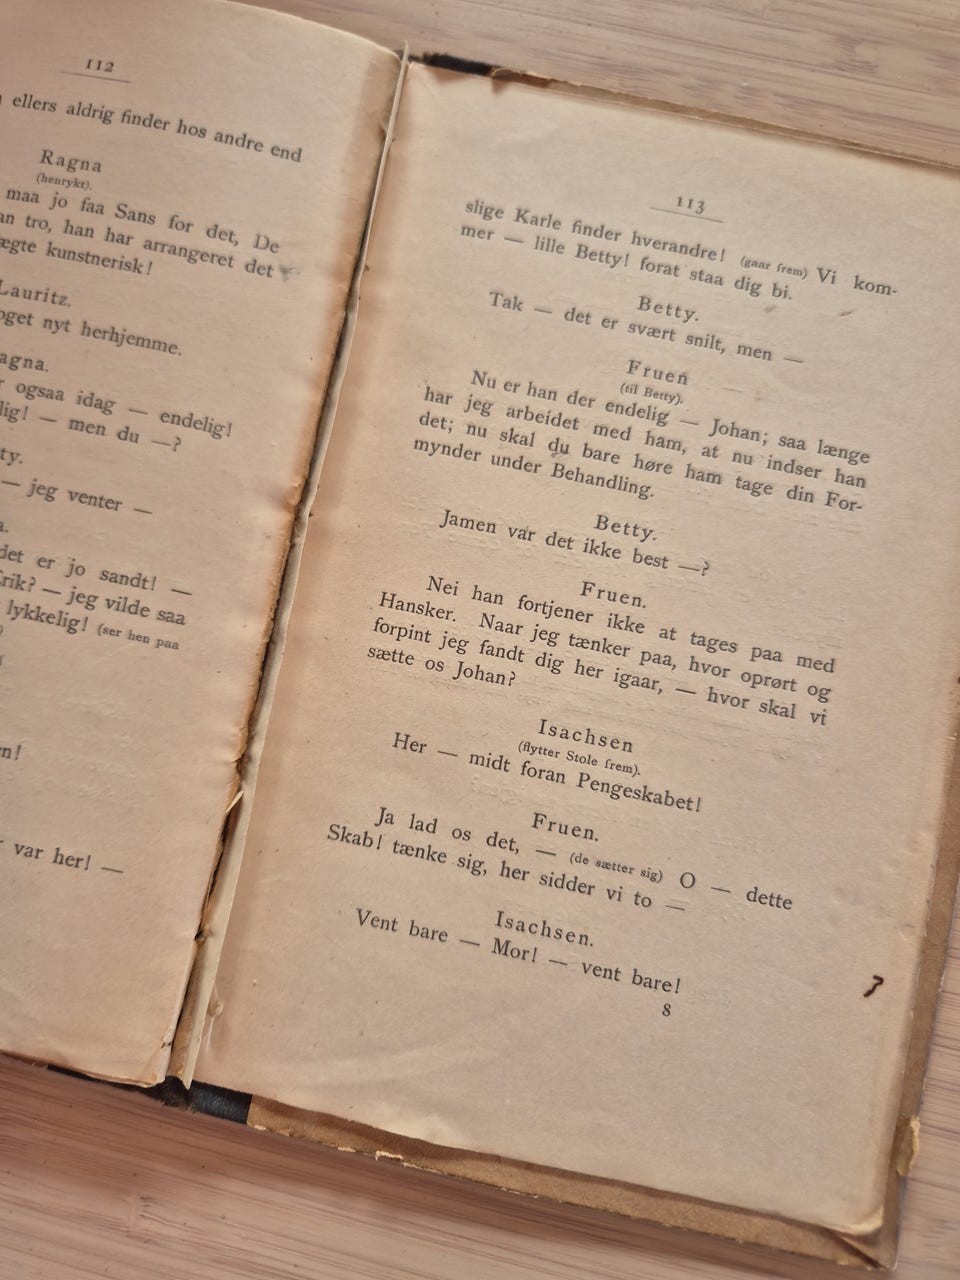 112
ellers aldrig finder hos andre end
Ragna
(henrykt).
maa jo faa Sans for det, De
tro, han har arrangeret det
kunstnerisk!
Lauritz.
nyt herhjemme.
ogsaa idag — endelig!
— men du —?
— jeg venter —
det er jo sandt! —
— jeg vilde saa
lykkelig! (ser hen paa
var her! —
113
slige Karle finder hverandre! (gaar frem) Vi kom-
mer — lille Betty! forat staa dig bi.
Betty.
Tak — det er svært snilt, men —
Fruen
(til Betty).
Nu er han der endelig — Johan; saa længe
har jeg arbeidet med ham, at nu indser han
det; nu skal du bare høre ham tage din For-
mynder under Behandling.
Betty.
Jamen var det ikke best —?
Fruen.
Nei han fortjener ikke at tages paa med
Hansker. Naar jeg tænker paa, hvor oprørt og
forpint jeg fandt dig her igaar, — hvor skal vi
sætte os Johan?
Isachsen
(flytter Stole frem).
Her — midt foran Pengeskabet!
Fruen.
Ja lad os det, — (de sætter sig) O — dette
Skab! tænke sig, her sidder vi to —
Isachsen.
Vent bare — Mor! — vent bare!
8